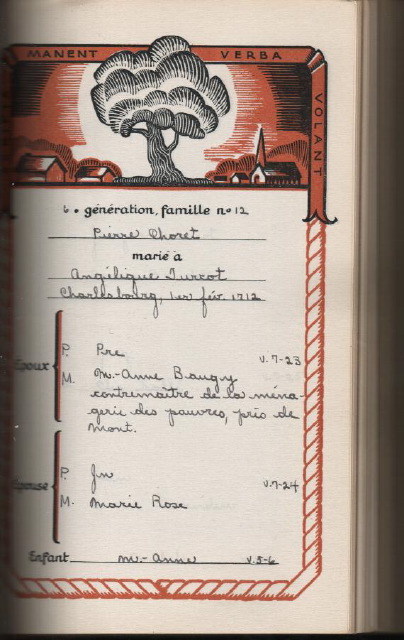 MANENT VERBA VOLANT
6e génération, famille nº 12
Pierre Choret
marié à
Angélique Turcot
Charlesbourg, 1er fév. 1712
Époux
P. Pre v.7-23
M. M.-Anne Baugy
contremaître de la ména-
gerie des pauvres, près de
mont.
Épouse
P. Jn v.7-24
M. Marie Rose
Enfant M.-Anne v.5-6